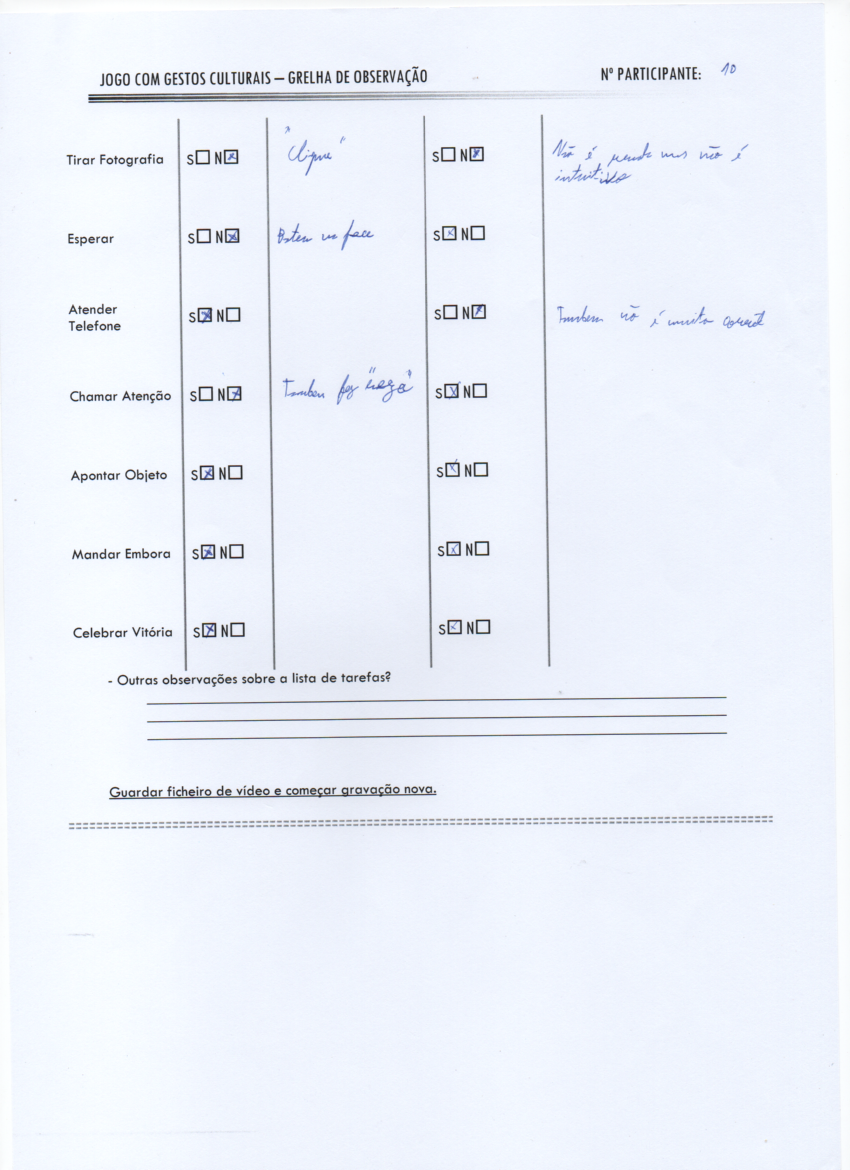 JOGO COM GESTOS CULTURAIS – GRELHA DE OBSERVAÇÃO Nº PARTICIPANTE: 10
Tirar Fotografia S☐ N☒ "Clique" S☐ N☒ Não é mas não é
intuitivo
Esperar S☐ N☒ na face S☒ N☐
Atender
Telefone S☒ N☐ S☐ N☒ Tambem não é muito
Chamar Atenção S☐ N☒ Tambem fez S☒ N☐
Apontar Objeto S☒ N☐ S☒ N☐
Mandar Embora S☒ N☐ S☒ N☐
Celebrar Vitória S☒ N☐ S☒ N☐
- Outras observações sobre a lista de tarefas?
Guardar ficheiro de vídeo e começar gravação nova.